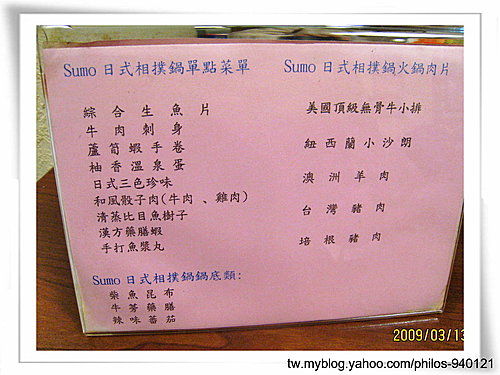 Sumo 日式相撲鍋單點菜單
綜合生魚片
牛肉刺身
蘆筍蝦手卷
柚香溫泉蛋
日式三色珍味
和風骰子肉(牛肉、雞肉)
清蒸比目魚樹子
漢方藥膳蝦
手打魚漿丸
Sumo 日式相撲鍋鍋底類:
柴魚昆布
牛蒡藥膳
辣味蕃茄
Sumo 日式相撲鍋火鍋肉片
美國頂級無骨牛小排
紐西蘭小沙朗
澳洲羊肉
台灣豬肉
培根豬肉
2009/03/13
tw.myblog.yahoo.com/philos-940121